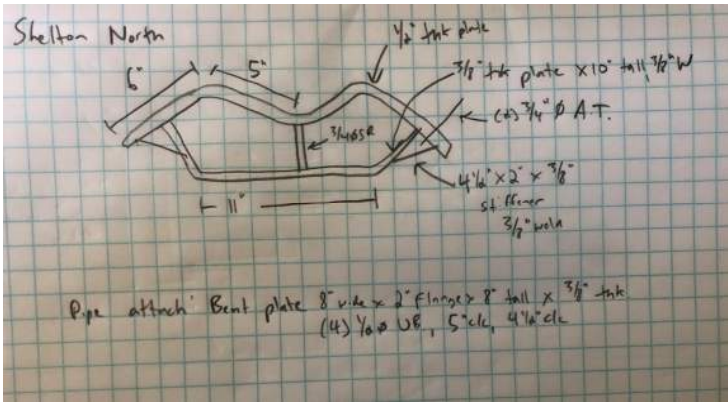 Shelton North
1/2" thk plate
6"
5"
3/8" thk plate x10" tall, 3/8" W
(2) 3/4" Ø A.T.
3/4 Ø SR
4 1/2" x 2" x 3/8"
stiffener
3/8" weld
11"
Pipe attach: Bent plate 8" wide x 2" flange x 8" tall x 3/8" thk
(4) 1/2 Ø UB, 5" c/c, 4 1/2" c/c